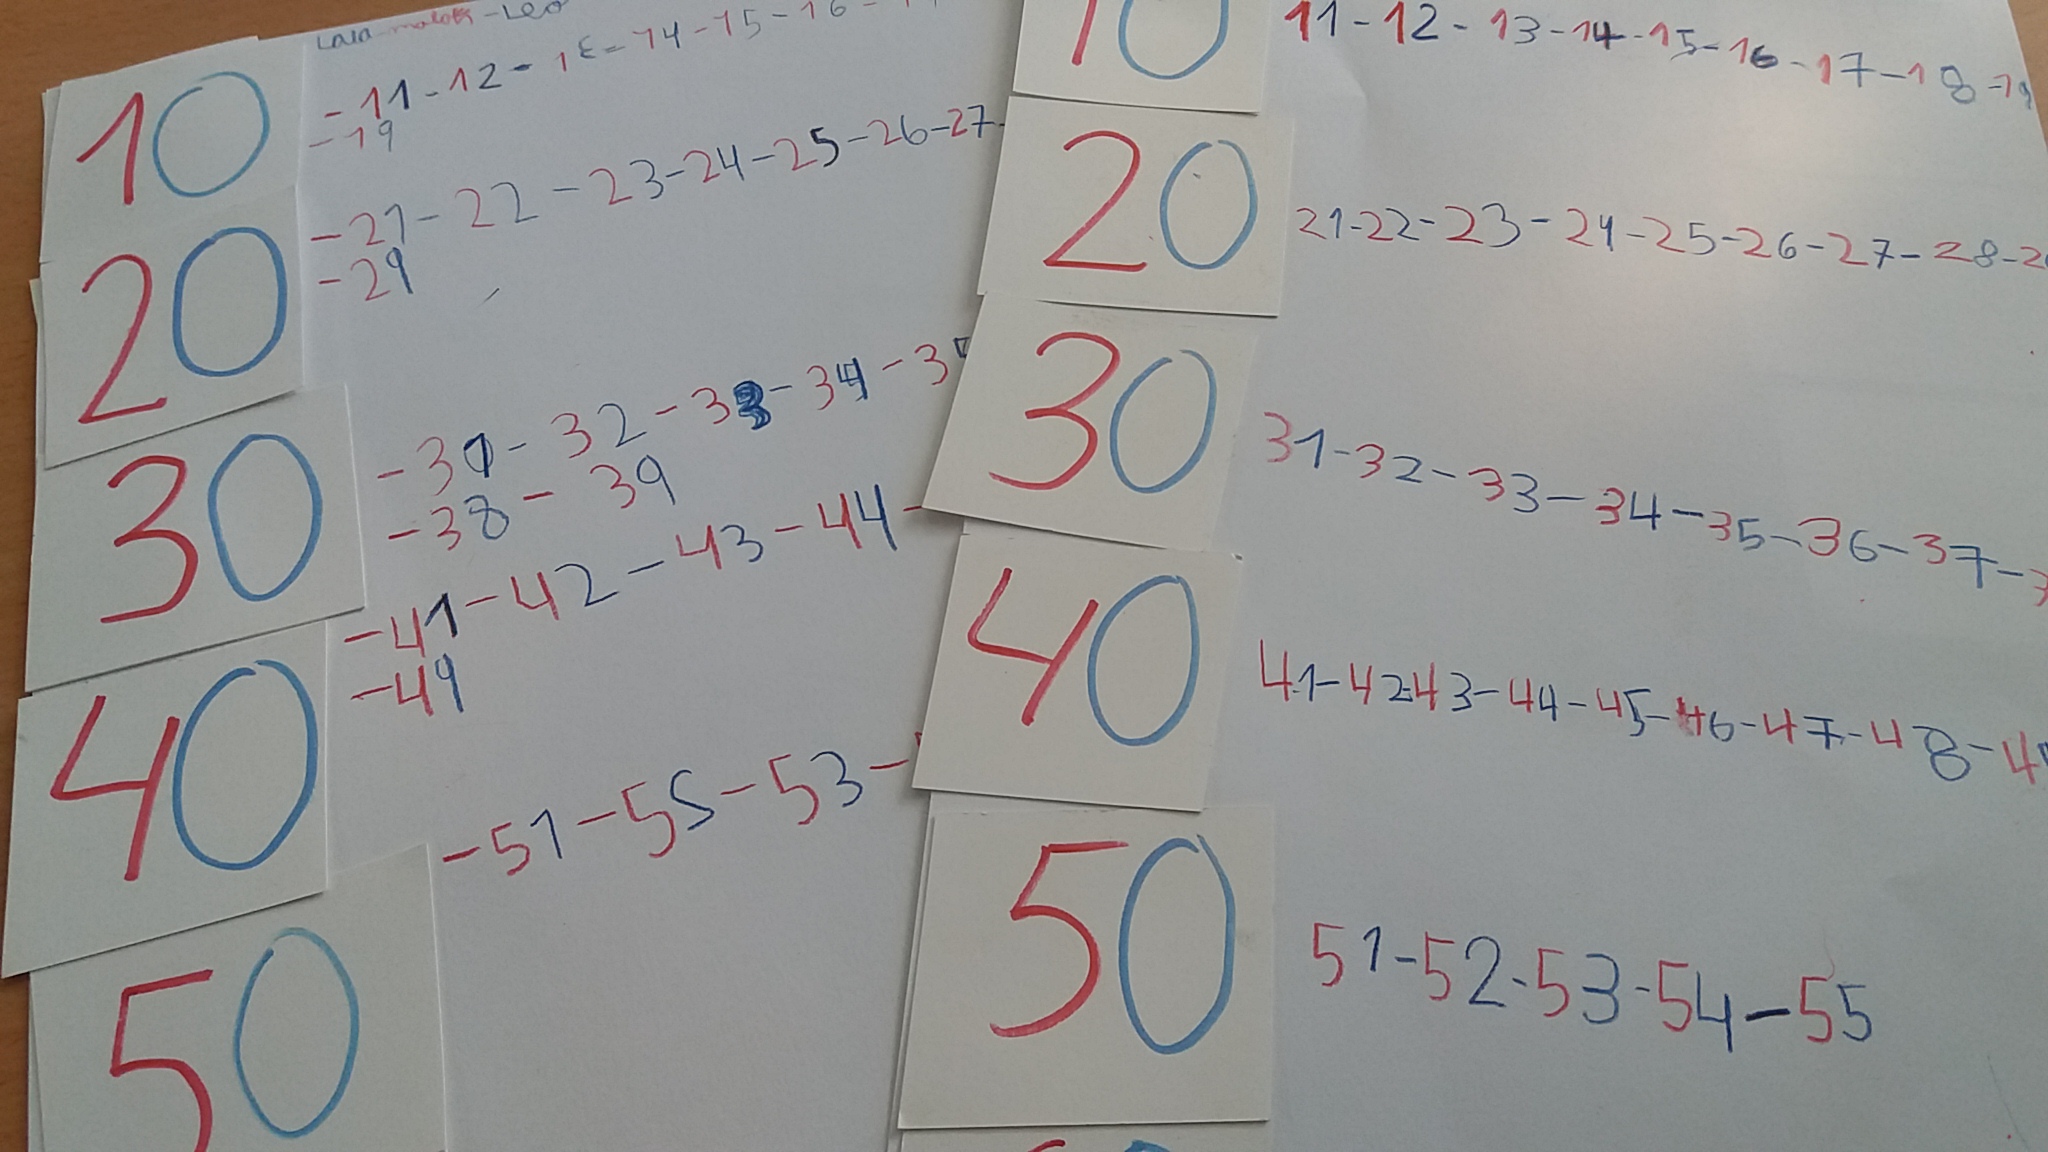 Lara-malak-Leo
10 -11-12-1Ɛ-14-15-16-
-19
20 -21-22-23-24-25-26-27-
-29
30 -31-32-33-34-3
-38-39
40 -41-42-43-44-
-49
50 -51-55-53-
10 11-12-13-14-15-16-17-18-19
20 21-22-23-24-25-26-27-28-2
30 31-32-33-34-35-36-37-3
40 41-42-43-44-45-46-47-48-4
50 51-52-53-54-55